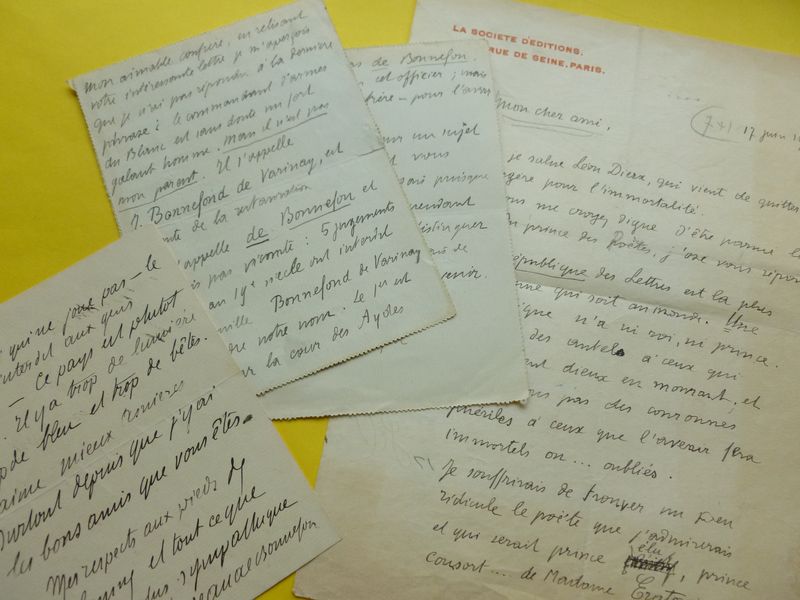 mon aimable confrère, en relisant
votre intéressante lettre je m'aperçois
que je n'ai pas répondu à la dernière
phrase : le commandant d'armes
du Blanc est sans doute un fort
galant homme. Mais il n'est pas
mon parent. Il s'appelle
Bonnefond de Varinay, est
te de la restauration
appelle de Bonnefon et
is pas vicomte : 5 jugements
au 19e siecle ont interdit
ille Bonnefond de Varinay
dre notre nom. Le 1er est
la cour des Aydes
de Bonnefon.
cet officier ; mais
frère — pour l'avoir
sur un sujet
vous
puisque
endant
distinguer
de
enir.
LA SOCIETE D'EDITIONS.
RUE DE SEINE. PARIS.
mon cher ami,
17 juin
je salue Léon Dierx, qui vient de quitter
gère pour l'immortalité.
ous me croyez digne d'être parmi le
n prince des Poètes, j'ose vous répon
république des Lettres est la plus
nne qui soit au monde. Une
ique n'a ni roi, ni prince.
des autels à ceux qui
nt dieux en mourant, et
ns pas des couronnes
puériles à ceux que l'avenir fera
immortels ou ... oubliés.
Je souffrirais de trouver un peu
ridicule le poète que j'admirerais
et qui serait prince élu, prince
consort ... de Madame Erato
qui ne joue pas — le
interdit aux gens
— Ce pays est plutôt
. Il y a trop de lumière
op de bleu et trop de bêtes.
aime mieux
Surtout depuis que j'y ai
les bons amis que vous êtes.
Mes respects aux pieds de
et tout ce que
sympathique
Jean de Bonnefon